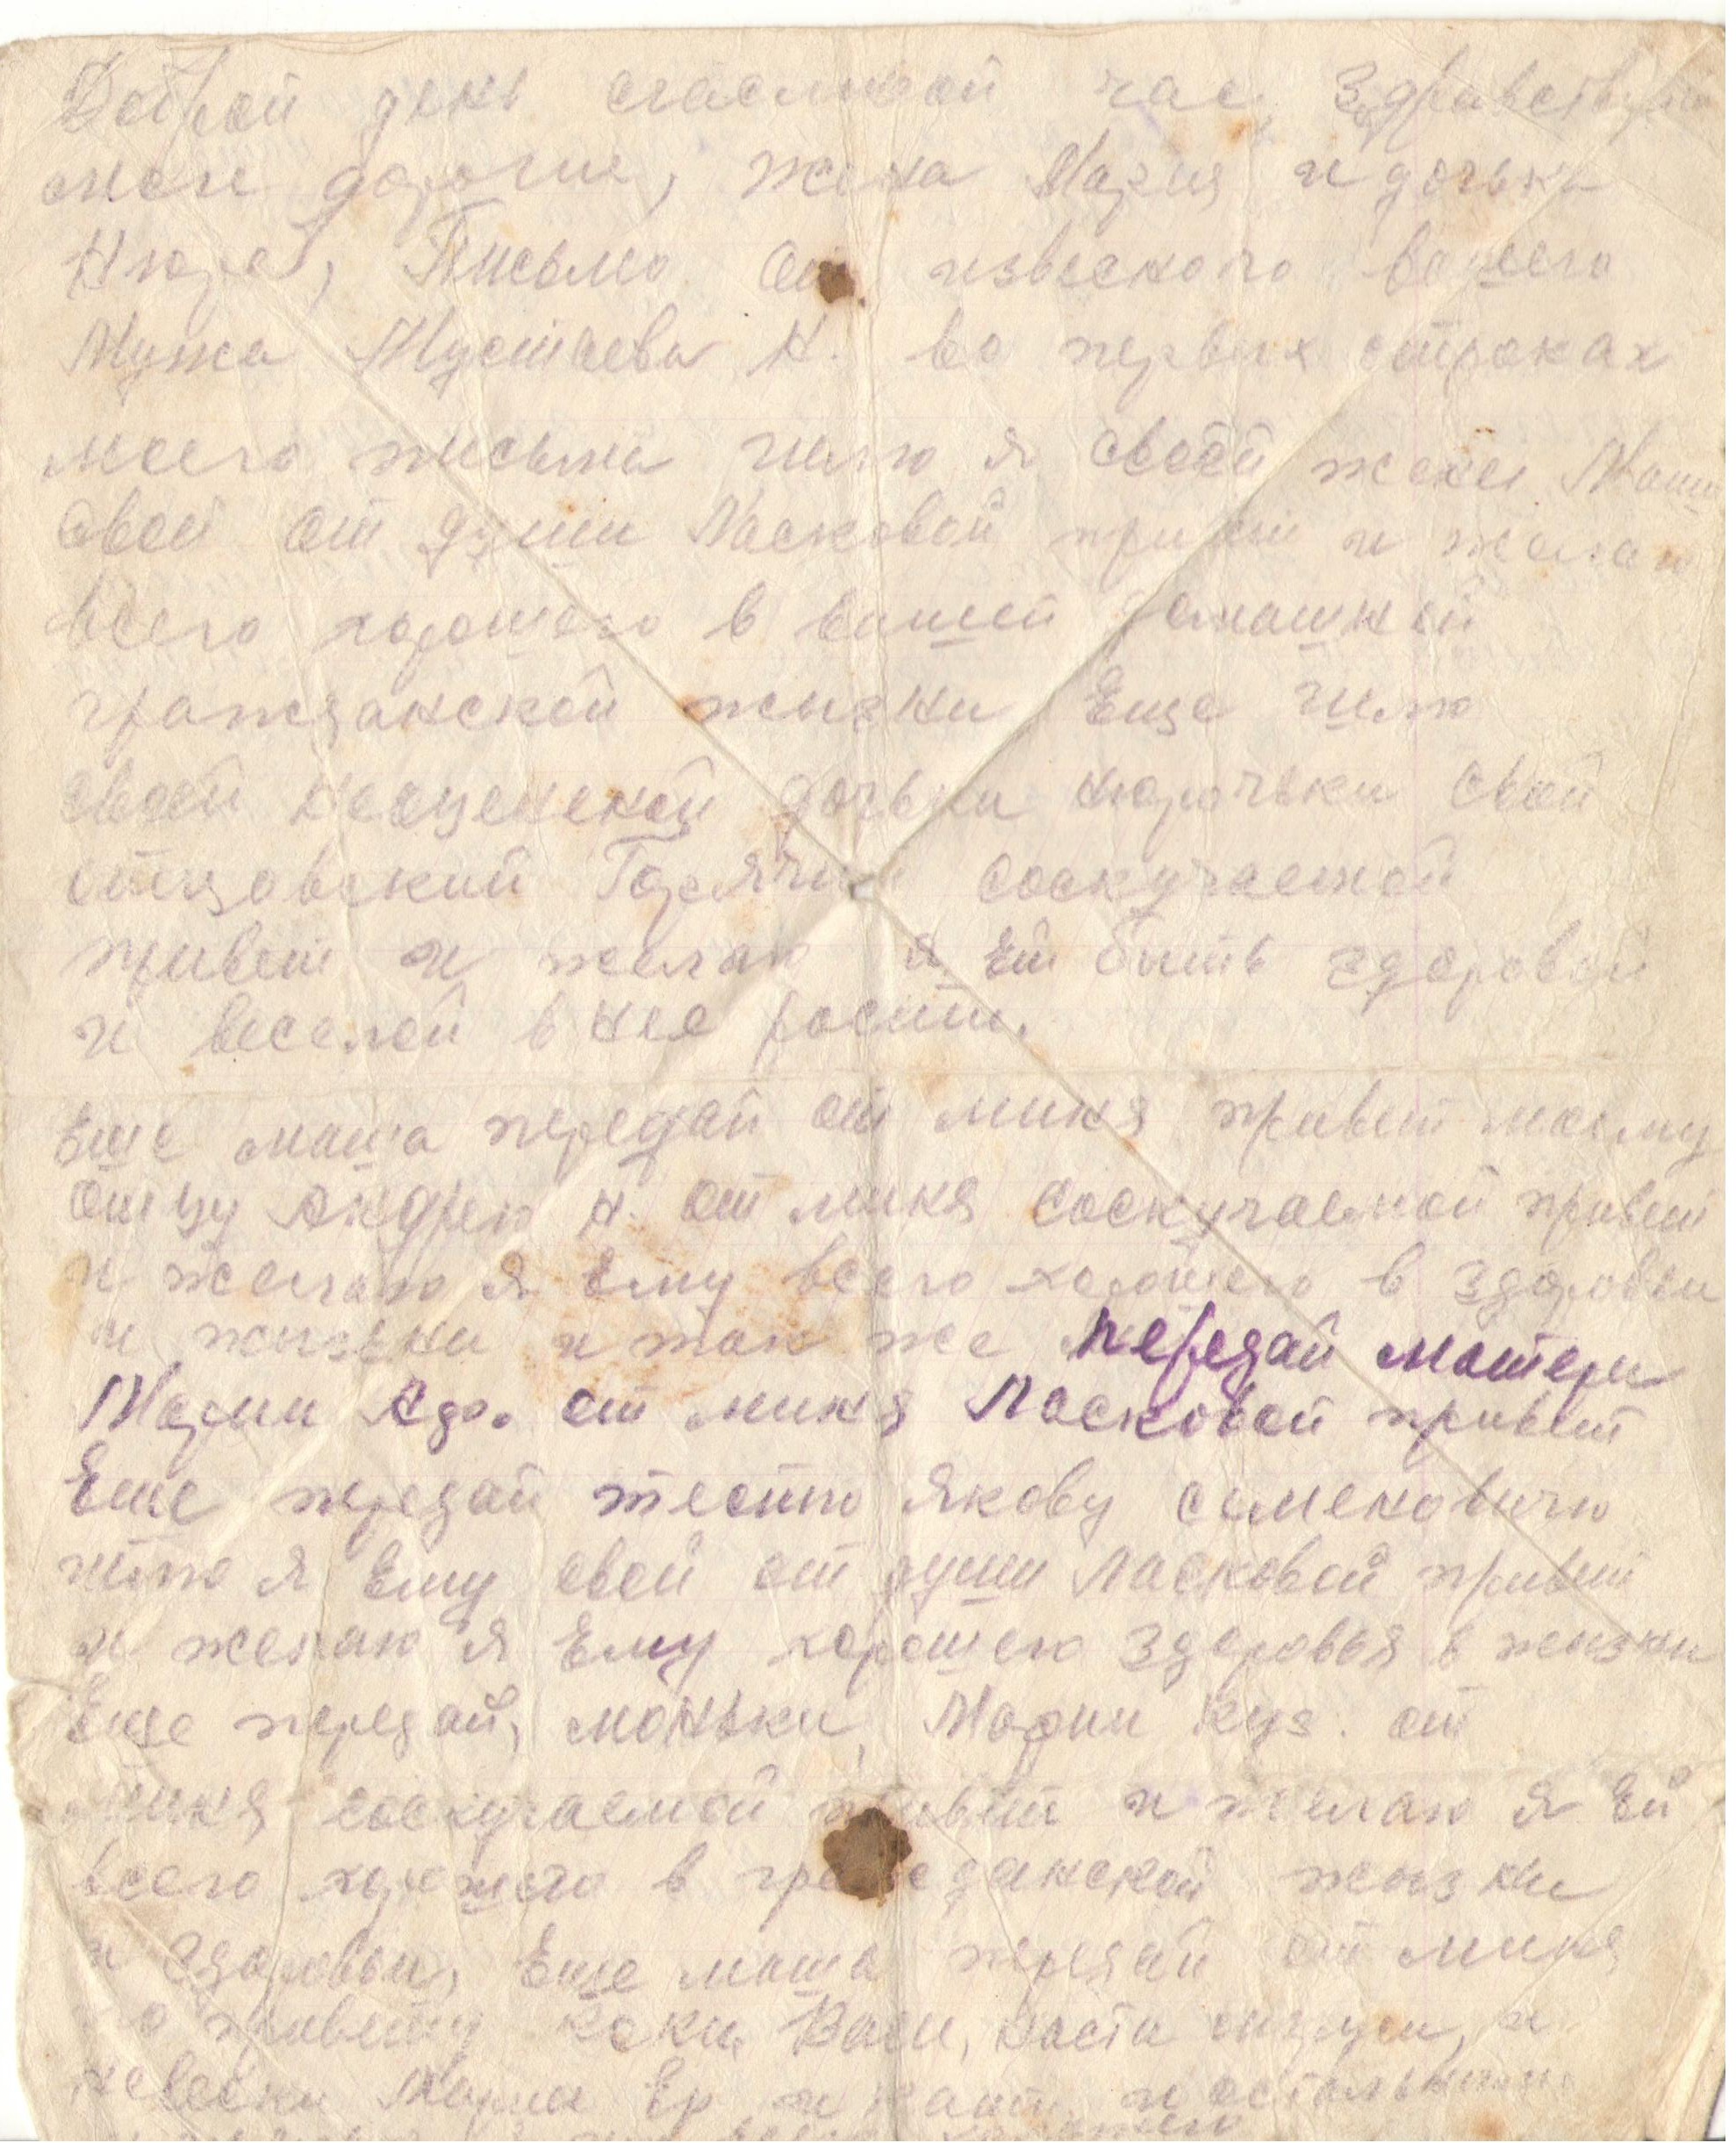 Доброй день счасливой час Здравствуйте
мои дорогие, жена Мария и дочька
Нюра, Письмо От извеского вашего
Мужа Мустаева Н. во первых строках
моего письма шлю я своей жены Маши
свой от души Ласковой привет и желаю
всего хорошего в вашей домашней
гражданской жызни Еще шлю
своей неоценской дочьки Нюрочьки свой
отцовский Горячий соскучаемой
привет и желаю я Ей быть здоровой
и веселой в нее рости.
Еще маша передай от миня привет моему
отцу Андрею Н. от миня соскучаемой привет
и желаю я Ему всего хорошего в здоровьи
и жызьни и так же передай матери
Марии Адр. от миня Ласковой привет
Еще передай тестю Якову семеновичю
шлю я Ему свой от души ласковой привет
и желаю я Ему хорошего здоровья в жызни
Еще передай, моньки, Марии Куз. от
миня соскучаемой привет и желаю я Ей
всего хорошего в гражданской жызни
и здоровьи, Еще маша передай от миня
по привету коки Вали, насти и
невески Марии Ер и кати и остальным